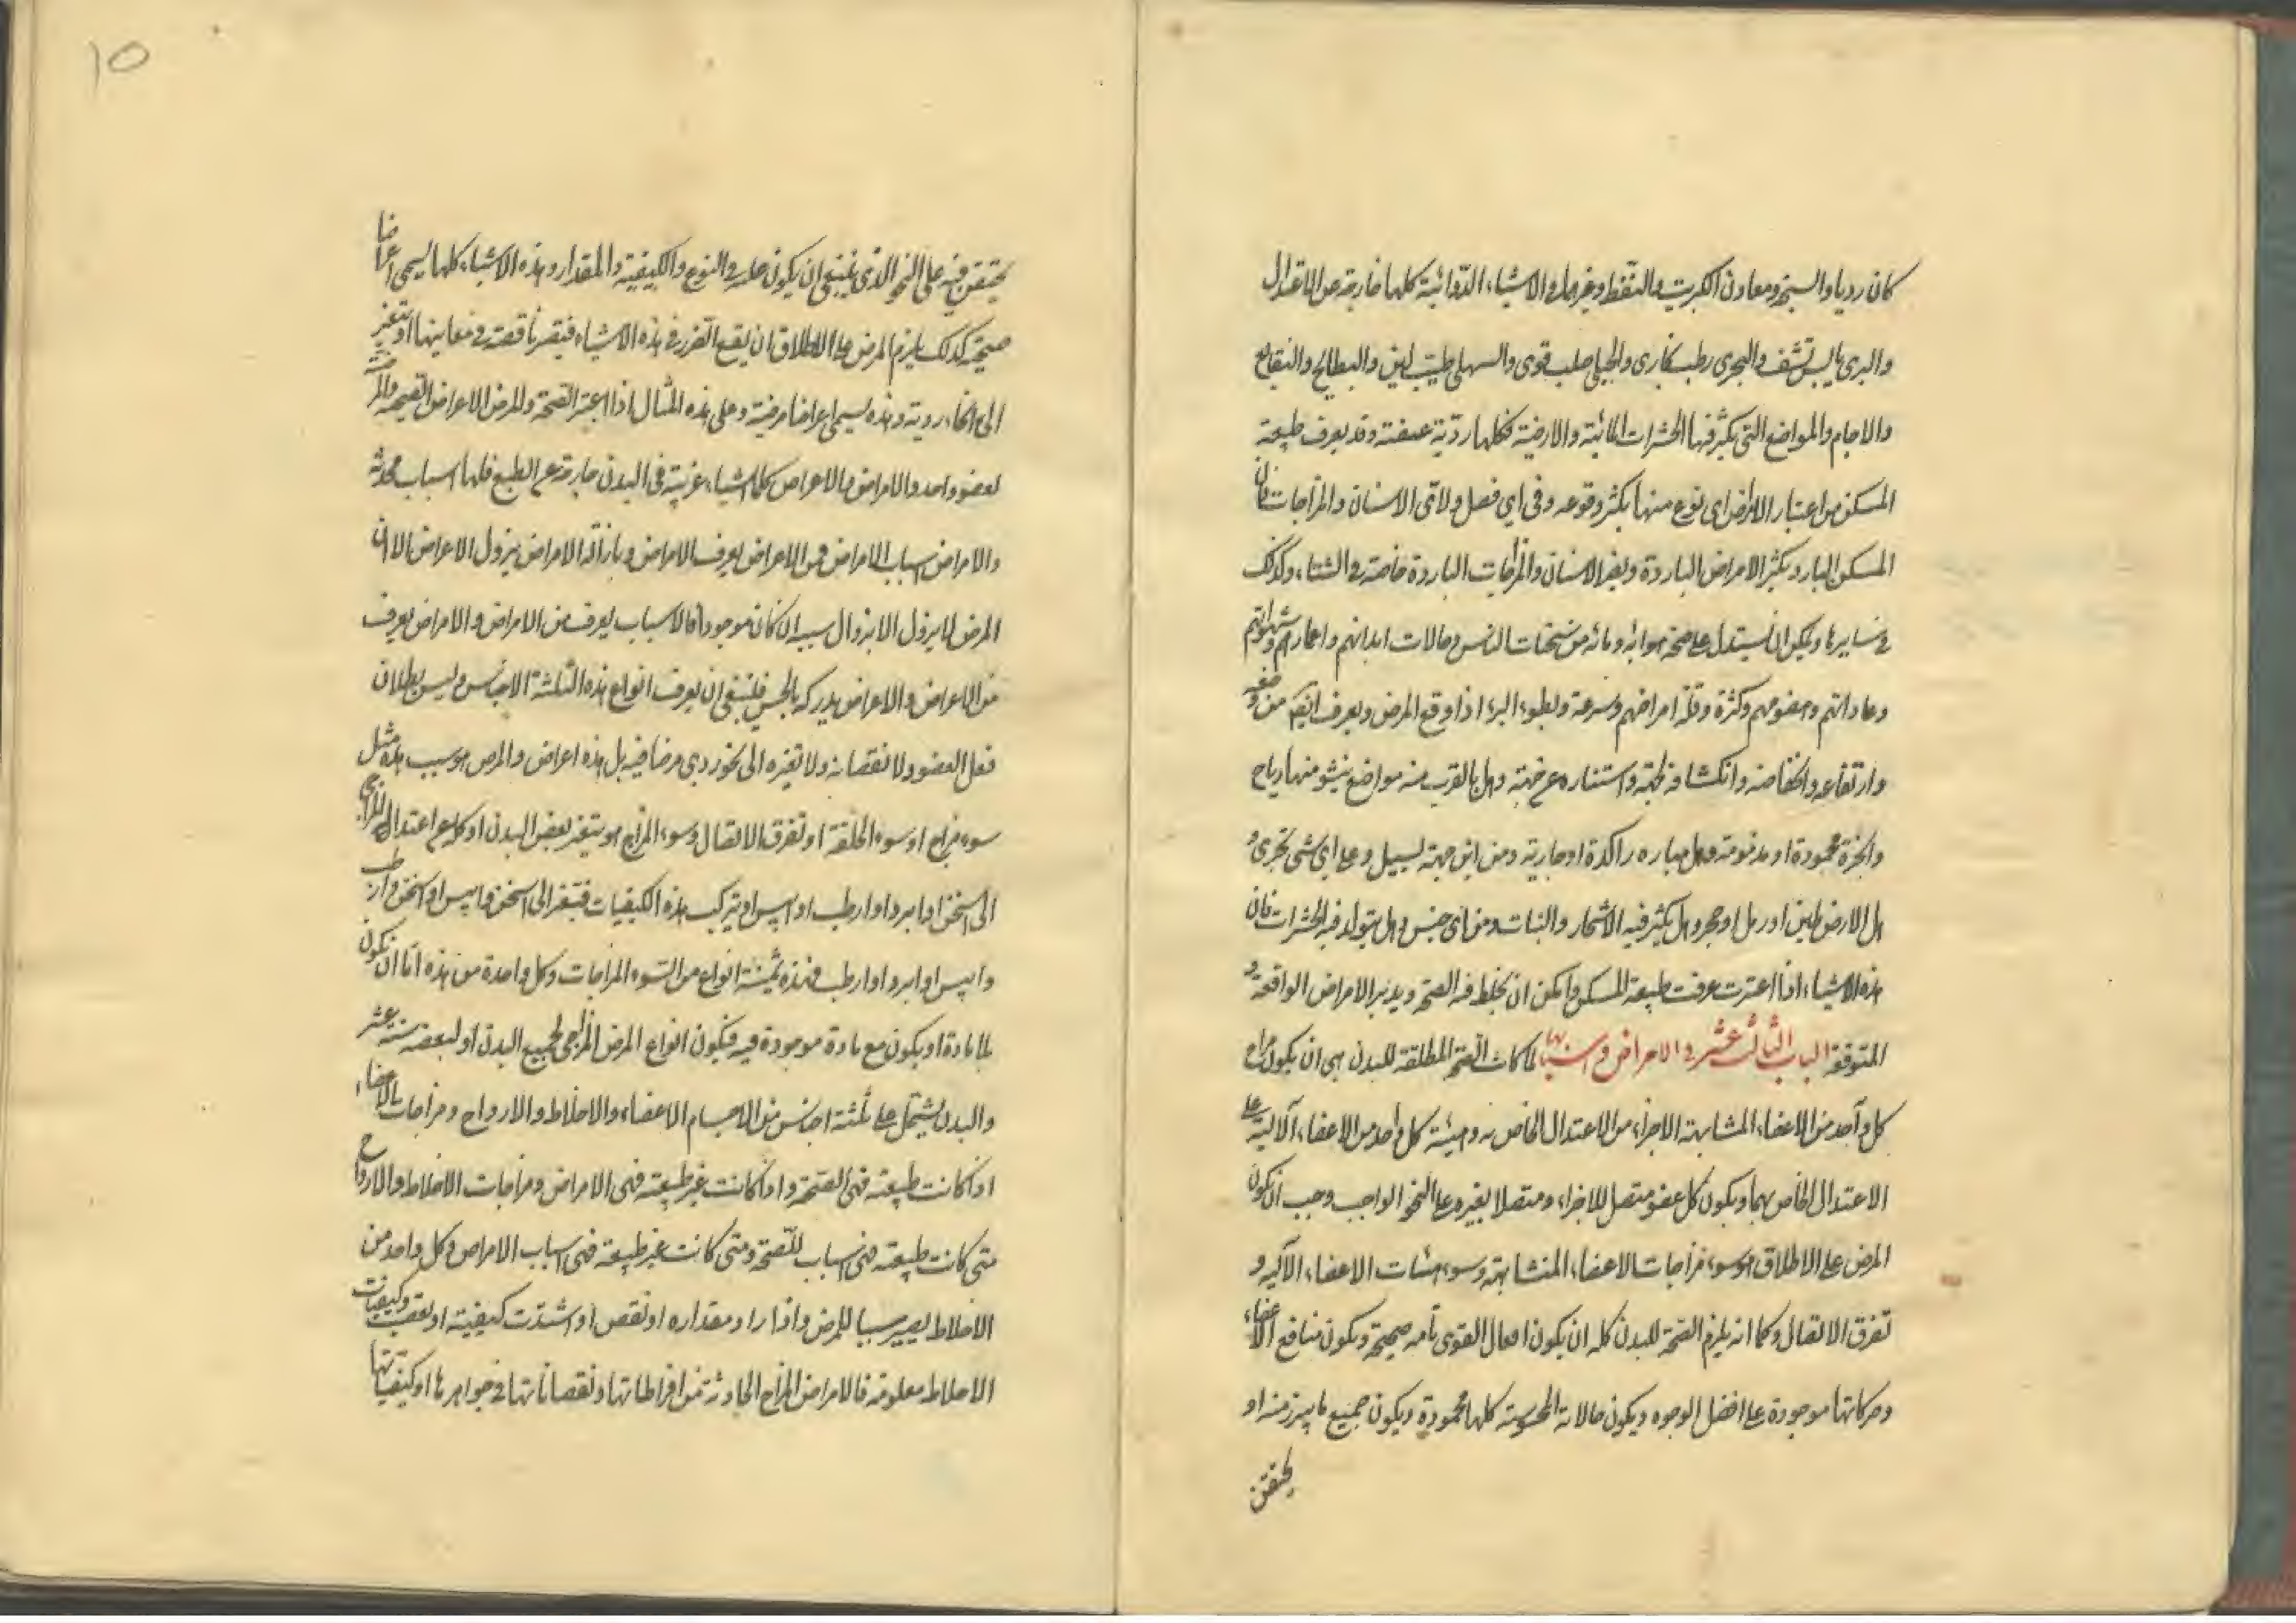 كان رديا والسبخ ومعادن الكبريت والنفط وغيرها والاشياء الدوائية كلها خارجة عن الاعتدال
والبرى يابس نشف والبحرى رطب بخارى والجبلى صلب قوى والسهلى طيب لين والبطايح والنقايع
والاجام والمواضع التى يكثر فيها الحشرات المائية والارضية فكلها رديّة عفنة وقد يعرف طبيعة
المسكن من اعتبار الامراض اى نوع منها يكثر وقوعه وفى اي فصل ولاى الاسنان والمزاجات فان
المسكن البارد يكثر الامراض الباردة ويضر الاسنان والمزاجات الباردة خاصة فى الشتاء وكذلك
فى سايرها ويمكن ان يستدل على صحة هوائه ومائه من سحنات الناس وحالات ابدانهم واعمارهم وشهواتهم
وعاداتهم وهضومهم وكثرة وقلة امراضهم وسرعة وبطوء البرء اذا وقع المرض ويعرف ايضا من
وارتفاعه وانخفاضه وانكشافه لجهة واستتاره عن جهة وهل بالقرب منه مواضع ينشو منها رياح
وابخرة محمودة او مذمومة وهل مياره راكدة او جارية ومن اين جهة لسييل وعلى اي شى تجرى و
هل الارض طين او رمل او حجر وهل يكثر فيه الاشجار والنبات ومن اى جنس وهل يتولد فيه الحشرات فان
هذه الاشياء اذا اعتبرت عرفت طبيعة المسكن وامكن ان يحفظ فيه الصحة ويدبر الامراض الواقعة و
المتوقعة الباب الثالث عشر فى الامراض واسبابها لما كانت الصحة المطلقة للبدن هى ان يكون مزاج
كل واحد من الاعضاء المشابهة الاجزاء من الاعتدال الخاص به وهيئة كل واحد من الاعضاء الآلية على
الاعتدال الخاص بها ويكون كل عضو متصل للاجزاء ومتصلا بغيره على النحو الواجب وجب ان يكون
المرض على الاطلاق هو سوء مزاجات الاعضاء المتشابهة وسوء هيئات الاعضاء الآليه و
تفرق الاتصال وكما انه يلزم الصحة للبدن كله ان يكون افعال القوى تامه صحيحة ويكون منافع الاعضاء
وحركاتها موجودة على افضل الوجوه ويكون حالاته المحسوسة كلها محمودة ويكون جميع ما يبرز منه او
يحتقن
١٥
يحتقن فيه على النحو الذى ينبغى ان يكون عليه فى النوع والكيفية والمقدار وهذه الاشياء كلها يسمى اعراضا
صحية كذلك يلزم المرض على الاطلاق ان يقع الضرر فى هذه الاشياء فيقصر ناقصة فى معاينها او يتغير
الى انحاء ردية وهذه يسمى اعراضا مرضية وعلى هذه المثال اذا اعتبر الصحة والمرض الاعراض الصحية والمرضية
لعضو واحد والامراض والاعراض كلها اشياء غريبة فى البدن خارجة عن الطبع فلها اسباب محدثة
والامراض اسباب الامراض فمن الاعراض يعرف الامراض وبازالة الامراض يزول الاعراض الا ان
المرض لا يزول الا بزوال سببه ان كان موجودا فالاسباب يعرف من الامراض والامراض يعرف
من الاعراض والاعراض يدركه بالحس فينبغى ان يعرف انواع هذه الثلثة الاجناس وليس بطلان
فعل العضو ولا نقصانه ولا تغيره الى نحو ردى مرضا فيه بل هذه اعراض والمرض هو سبب هذه مثل
سوء مزاج او سوء الخلقة او تفرق الاتصال وسوء المزاج هو تغير بعض البدن او كله عن اعتدال المزاجى
الى اسخن او ابرد او ارطب او ايبس او تركب هذه الكيفيات فيتغير الى اسخن وايبس او اسخن وارطب
وايبس او ابرد او ارطب فهذه ثمنية انواع من السوء المزاجات وكل واحدة من هذه اما ان يكون
بلا مادة او يكون مع مادة موجودة فيه فيكون انواع المرض المزاجى لجميع البدن او لبعضه ستة عشر
والبدن يشتمل على ثلثة اجناس من الاجسام الاعضاء والاخلاط والارواح ومزاجات الاعضاء
اذا كانت طبيعية فهى الصحة واذا كانت غير طبيعية فهى الامراض ومزاجات الاخلاط والارواح
متى كانت طبيعية فهى اسباب للصحة ومتى كانت غير طبيعية فهى اسباب الامراض وكل واحد من
الاخلاط يصير سببا للمرض واذا زاد مقداره او نقص او اشتدت كيفيته او وكيفيات
الاخلاط معلومة فالامراض المزاج الحادثة من افراطاتها ونقصاناتها فى جواهرها او كيفياتها